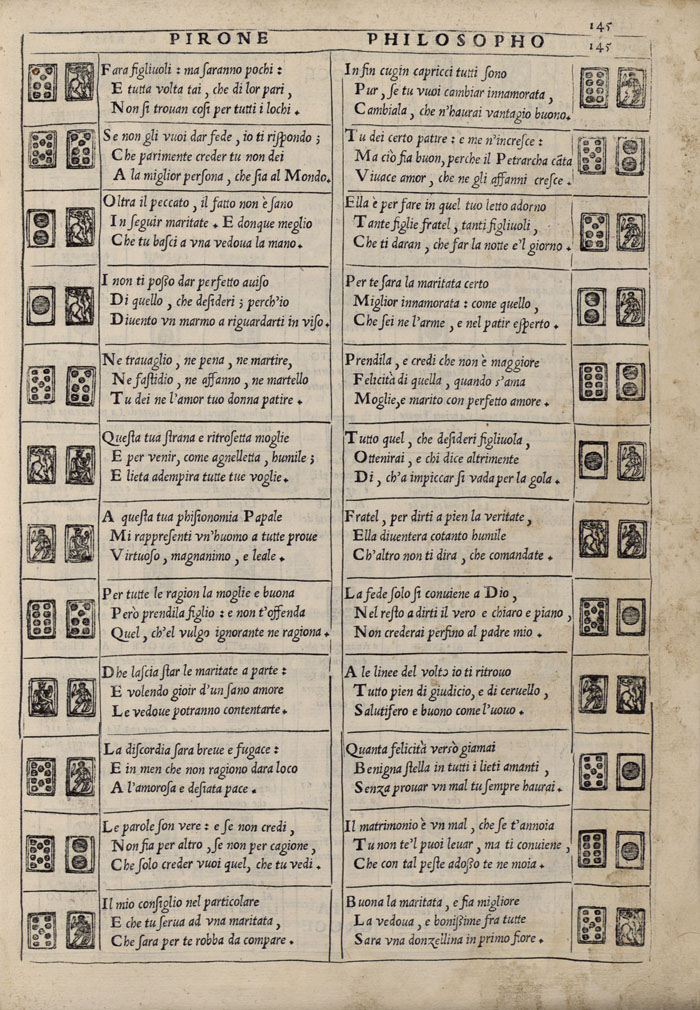 145
PIRONE PHILOSOPHO 145
Fara figliuoli : ma saranno pochi :
E tutta volta tai , che di lor pari ,
Non si trouan cosi per tutti i lochi .
Se non gli vuoi dar fede , io ti rispondo ;
Che parimente creder tu non dei
A la miglior persona , che sia al Mondo.
Oltra il peccato , il fatto non è sano
In seguir maritate . E donque meglio
Che tu basci a vna vedoua la mano .
I non ti posso dar perfetto auiso
Di quello , che desideri ; perch'io
Diuento vn marmo a riguardarti in viso .
Ne trauaglio , ne pena , ne martire,
Ne fastidio , ne affanno , ne martello
Tu dei ne l'amor tuo donna patire .
Questa tua strana e ritrosetta moglie
E per venir, come agnelletta , humile ;
E lieta adempira tutte tue voglie .
A questa tua phisionomia Papale
Mi rappresenti vn'huomo a tutte proue
Virtuoso , magnanimo , e leale .
Per tutte le ragion la moglie e buona
Però prendila figlio : e non t'offenda
Quel , ch'el vulgo ignorante ne ragiona .
Dhe lascia star le maritate a parte :
E volendo gioir d'un sano amore
Le vedoue potranno contentarte .
La discordia sara breue e fugace :
E in men che non ragiono dara loco
A l'amorosa e desiata pace .
Le parole son vere : e se non credi ,
Non fia per altro , se non per cagione ,
Che solo creder vuoi quel, che tu vedi .
Il mio consiglio nel particolare
E che tu serua ad vna maritata ,
Che sara per te robba da compare .
In fin cugin capricci tutti sono
Pur , se tu vuoi cambiar innamorata ,
Cambiala , che n'haurai vantagio buono.
Tu dei certo patire : e me n'incresce :
Ma ciò fia buon, perche il Petrarcha cāta
Viuace amor , che ne gli affanni cresce .
Ella è per fare in quel tuo letto adorno
Tante figlie fratel , tanti figliuoli ,
Che ti daran , che far la notte e'l giorno .
Per te sara la maritata certo
Miglior innamorata : come quello ,
Che sei ne l'arme , e nel patir esperto .
Prendila , e credi che non è maggiore
Felicità di quella , quando s'ama
Moglie,e marito con perfetto amore .
Tutto quel , che desideri figliuola ,
Ottenirai , e chi dice altrimente
Di , ch'a impiccar si vada per la gola .
Fratel , per dirti a pien la veritate ,
Ella diuentera cotanto humile
Ch'altro non ti dira , che comandate .
La fede solo si conuiene a Dio ,
Nel resto a dirti il vero e chiaro e piano ,
Non crederai perfino al padre mio .
A le linee del volto io ti ritrouo
Tutto pien di giudicio, e di ceruello ,
Salutifero e buono come l'uouo .
Quanta felicità versò giamai
Benigna stella in tutti i lieti amanti ,
Senza prouar vn mal tu sempre haurai .
Il matrimonio è vn mal , che se t'annoia
Tu non te'l puoi leuar , ma ti conuiene ,
Che con tal peste adosso te ne moia .
Buona la maritata , e fia migliore
La vedoua , e bonissime fra tutte
Sara vna donzellina in primo fiore .